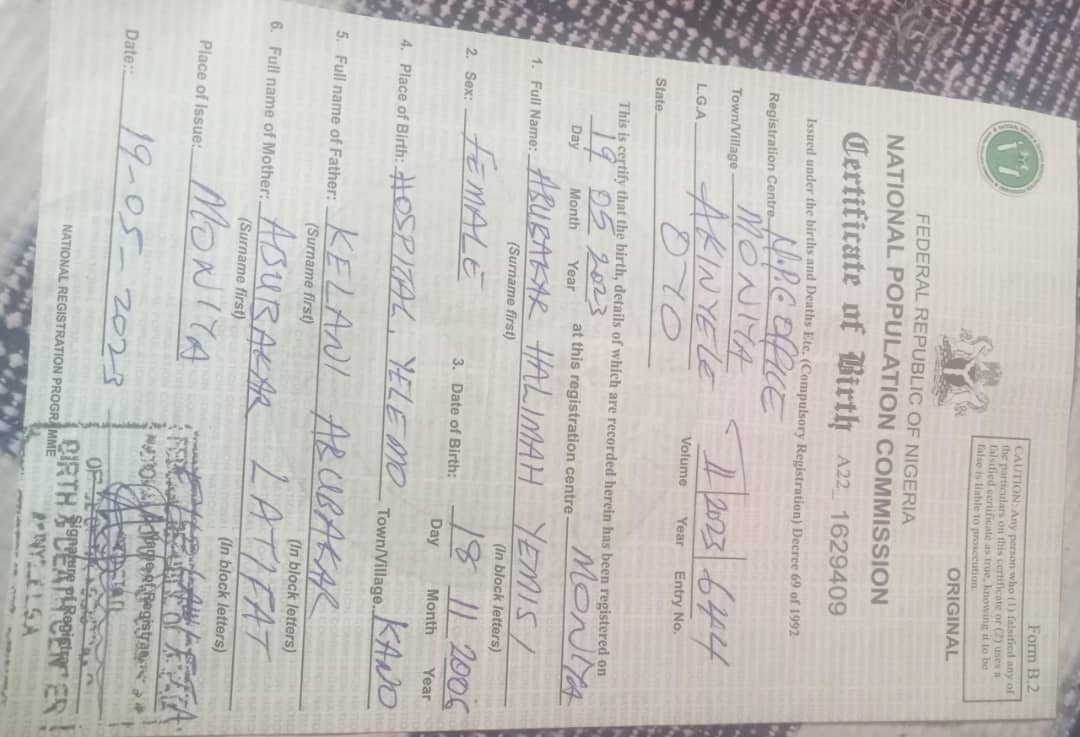 Form B.2
CAUTION: Any person who (1) falsified any of
the particulars on this certificate or (2) uses a
falsified certificate as true, knowing it to be
false is liable to prosecution.
ORIGINAL
FEDERAL REPUBLIC OF NIGERIA
NATIONAL POPULATION COMMISSION
Certificate of Birth A22_ 1629409
Issued under the births and Deaths Etc. (Compulsory Registration) Decree 69 of 1992
Registration Centre N.P.C OFFICE
Town/Village MONIYA
L.G.A AKINYELE 11 2023 644
Volume Year Entry No.
State OYO
This is certify that the birth, details of which are recorded herein has been registered on
19 05 2023 at this registration centre MONIYA
Day Month Year
1. Full Name: ABUBAKAR HALIMAH YEMISI
(Surname first) (In block letters)
2. Sex: FEMALE 3. Date of Birth: 18 11 2006
Day Month Year
4. Place of Birth: HOSPITAL, YELEMO Town/Village KANO
5. Full name of Father: KELANI ABUBAKAR
(Surname first) (In block letters)
6. Full name of Mother: ABUBAKAR LATIFAT
(Surname first) (In block letters)
Place of Issue: MONIYA
Name of Registrar
Date: 19-05-2023
Signature of Registrar
NATIONAL REGISTRATION PROGRAMME
BIRTH & DEATH CENTER